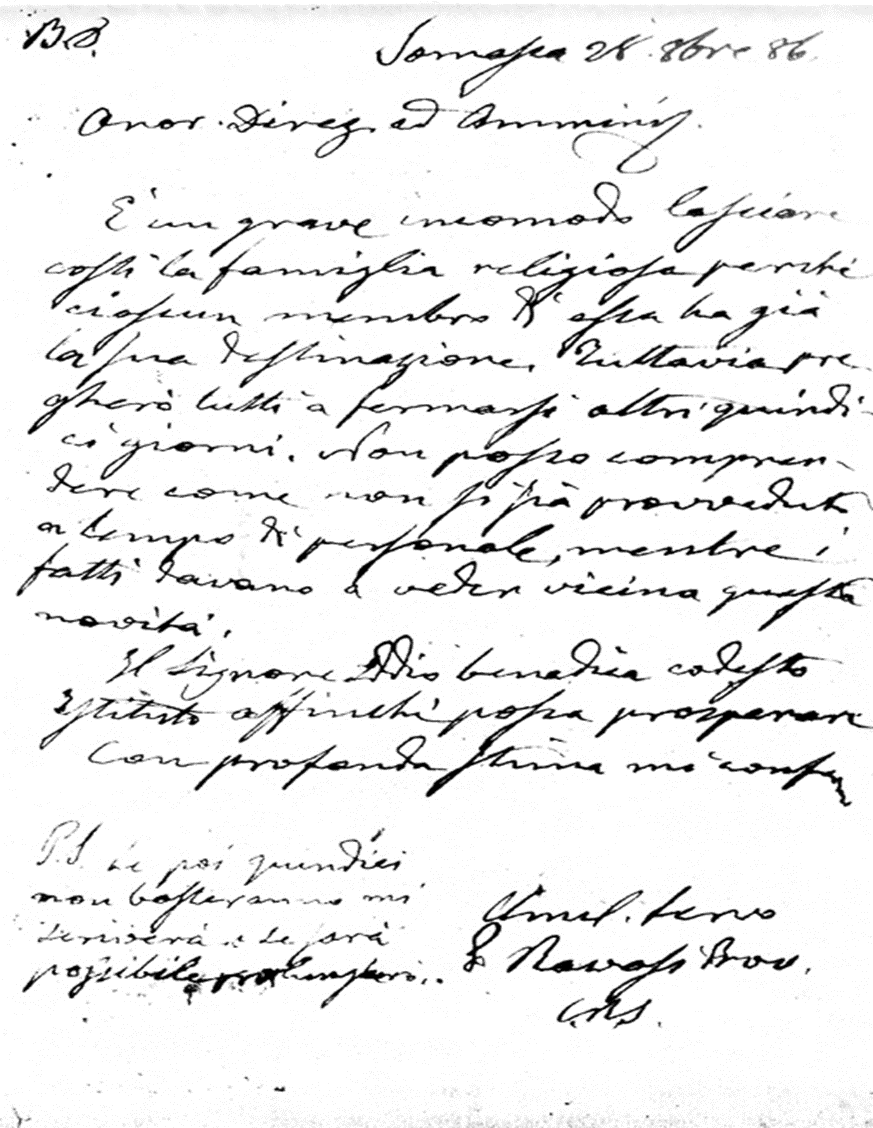 B.D.
Somasca 28 8bre 86
Onor. Direz. ed Amminis.
È un grave incomodo lasciare
costì la famiglia religiosa perchè
ciascun membro di essa ha già
la sua destinazione. Tuttavia pre
gherò tutti a fermarsi altri quindi-
ci giorni. Non posso compren-
dere come non si sia provveduto
a tempo di personale, mentre i
fatti davano a veder vicina questa
novità.
Il Signore Iddio benedica codesto
Istituto affinchè possa prosperare
Con profonda stima mi confer
P.S. Se poi quindici
non basteranno mi
scriverà e se sarà
possibile prolungherò..
Umil. servo
Ravasi Prov.
C.R.S.